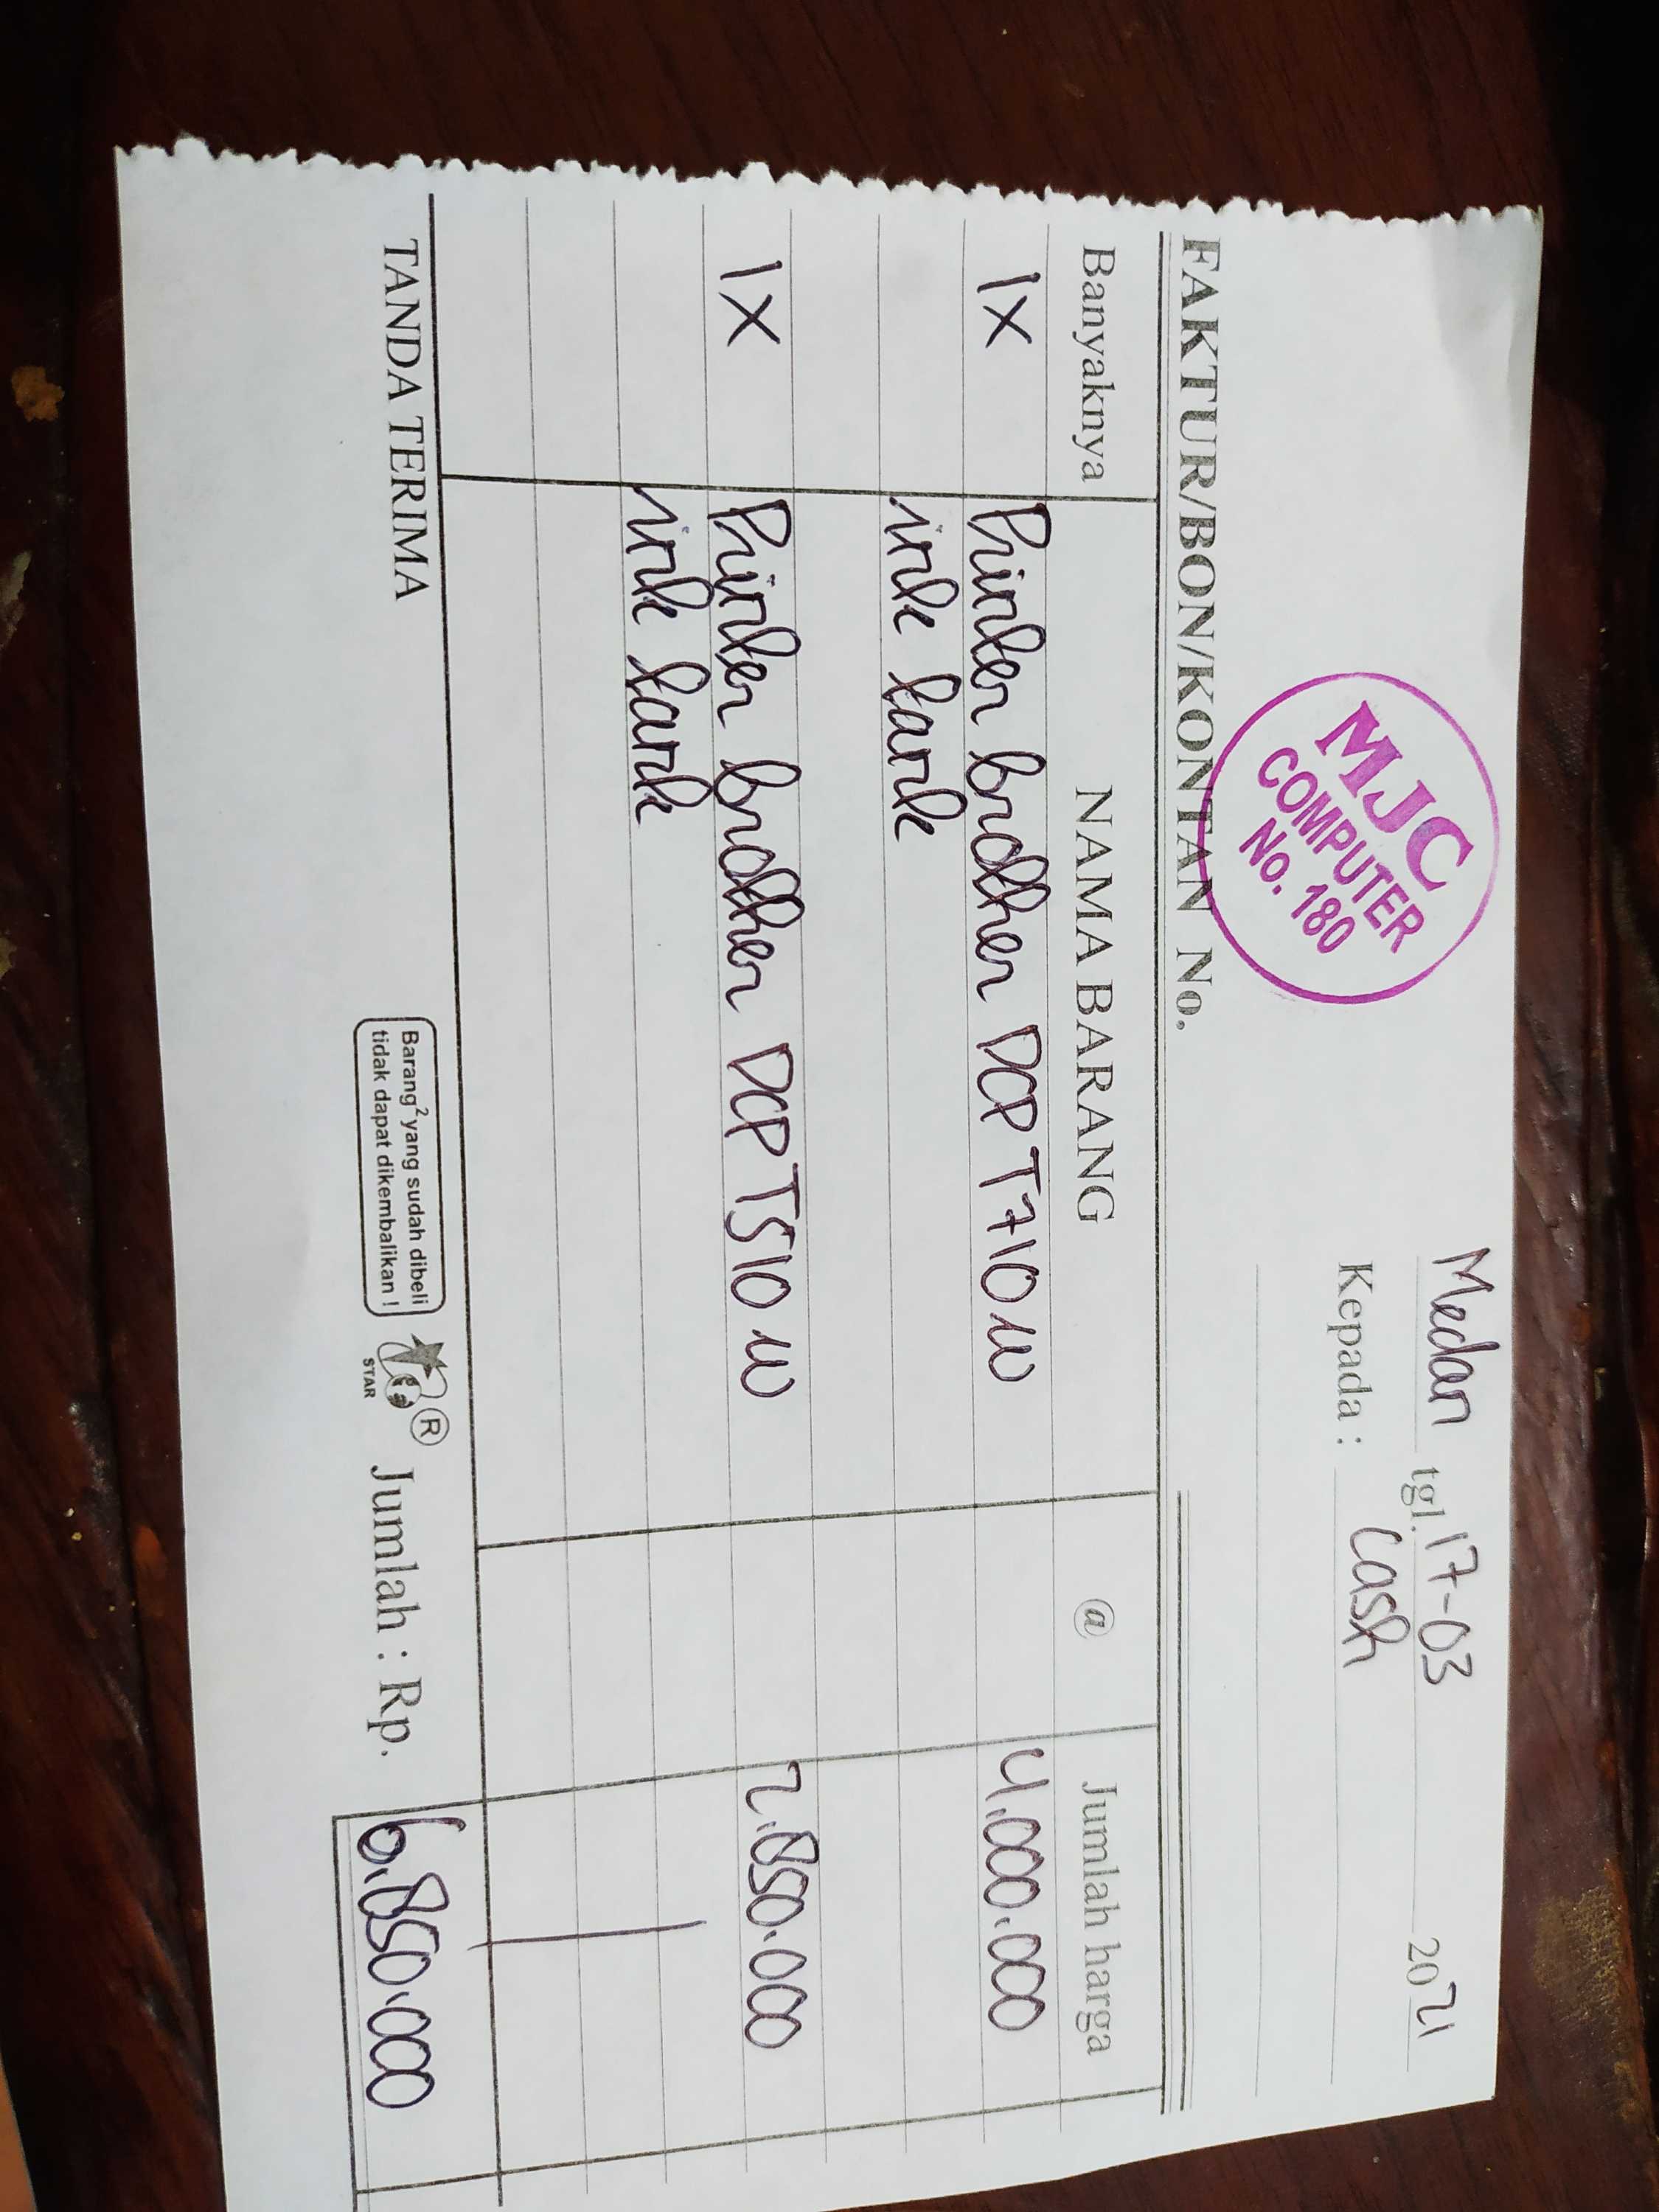 MJC
COMPUTER
No. 180
Medan tgl. 17-03 2021
Kepada : cash
FAKTUR/BON/KONTAN No.
Banyaknya NAMA BARANG @ Jumlah harga
1X Printer brother DCP T710W 4.000.000
ink tank
1X Printer brother DCP T510W 2.850.000
ink tank
TANDA TERIMA
Barang² yang sudah dibeli
tidak dapat dikembalikan !
®
STAR
Jumlah : Rp. 6.850.000